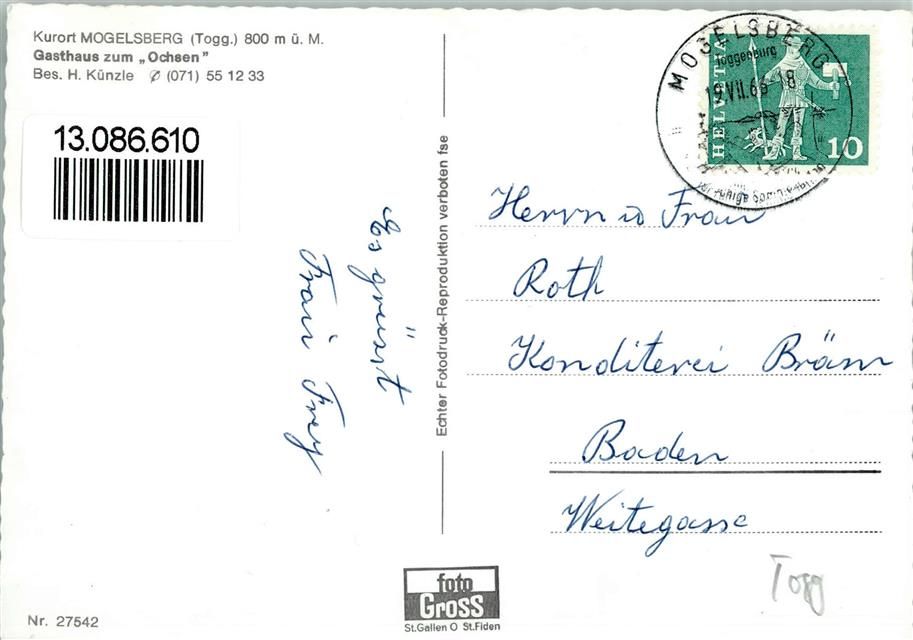 Kurort MOGELSBERG (Togg.) 800 m ü. M.
Gasthaus zum „Ochsen"
Bes. H. Künzle ✆ (071) 55 12 33
13.086.610
Es grüsst
Frau Frey
Echter Fotodruck-Reproduktion verboten fse
MOGELSBERG
Toggenburg
19.VII.66-18
HELVETIA
10
Herrn u Frau
Roth
Konditerei Bräm
Baden
Weitegasse
Togg
foto
Gross
St.Gallen O St.Fiden
Nr. 27542